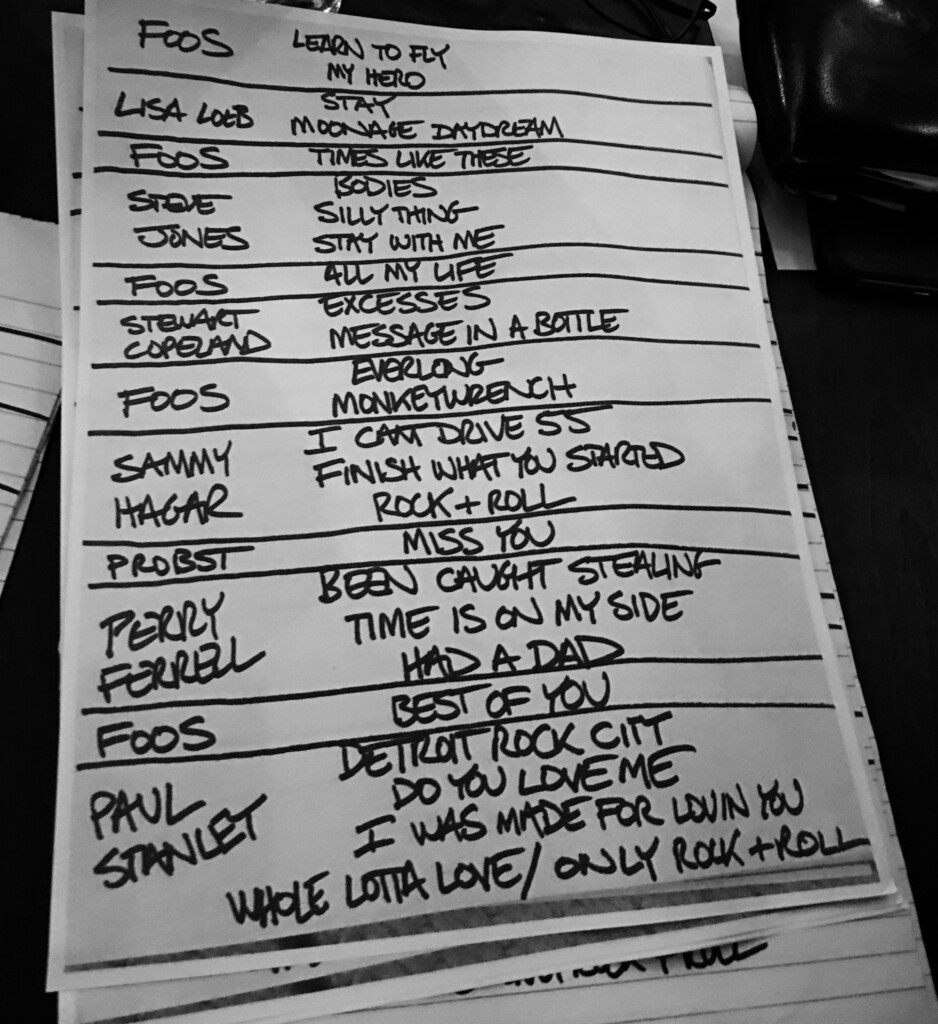 FOOS LEARN TO FLY
MY HERO
LISA LOEB STAY
MOONAGE DAYDREAM
FOOS TIMES LIKE THESE
STEVE BODIES
JONES SILLY THING
STAY WITH ME
FOOS ALL MY LIFE
STEWART EXCESSES
COPELAND MESSAGE IN A BOTTLE
FOOS EVERLONG
MONKEYWRENCH
SAMMY I CANT DRIVE 55
HAGAR FINISH WHAT YOU STARTED
ROCK + ROLL
PROBST MISS YOU
PERRY BEEN CAUGHT STEALING
FERRELL TIME IS ON MY SIDE
HAD A DAD
FOOS BEST OF YOU
PAUL DETROIT ROCK CITY
STANLEY DO YOU LOVE ME
I WAS MADE FOR LOVIN YOU
WHOLE LOTTA LOVE / ONLY ROCK + ROLL
ROLL